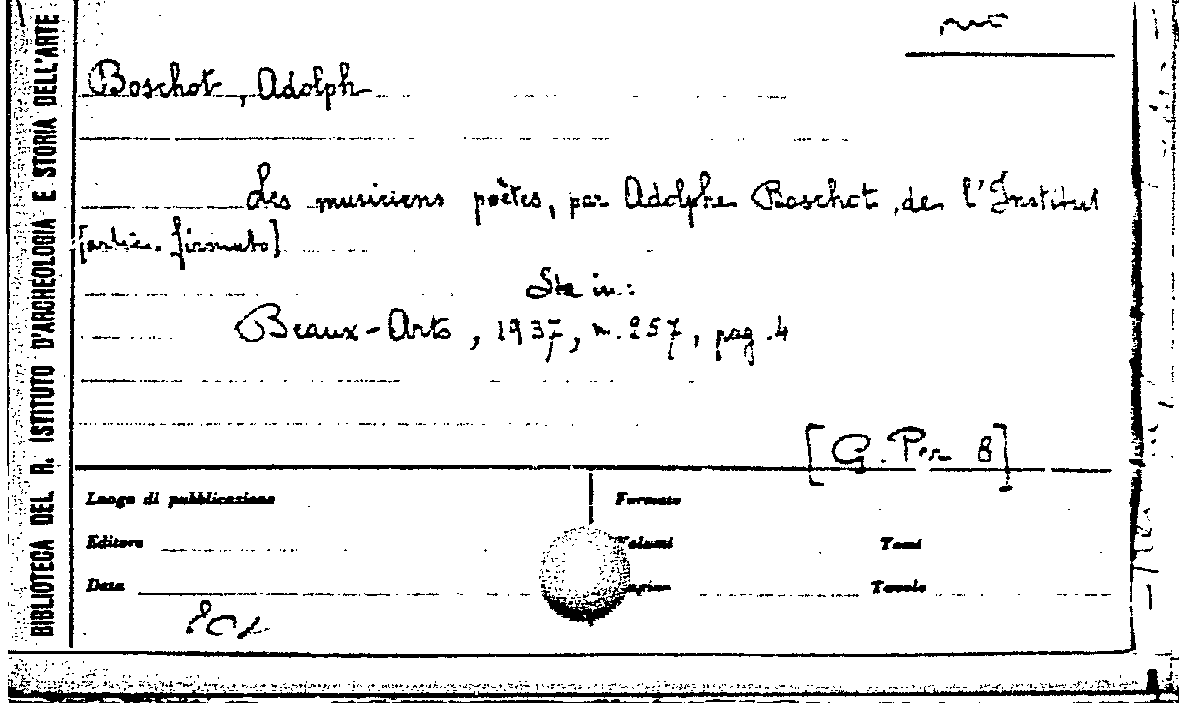 BIBLIOTECA DEL R. ISTITUTO D'ARCHEOLOGIA E STORIA DELL'ARTE
Boschot, Adolph
Les musiciens poètes, par Adolphe Boschot, de l'Institut
[artic. firmato]
Sta in:
Beaux-Arts, 1937, n. 257, pag. 4
[G. Per 8]
Luogo di pubblicazione
Formato
Editore
Volumi
Tomi
Data
Pagine
Tavole